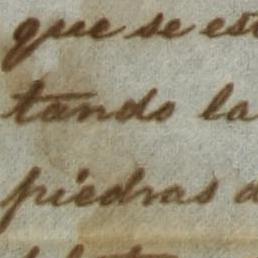 que se est
tando la
piedras d